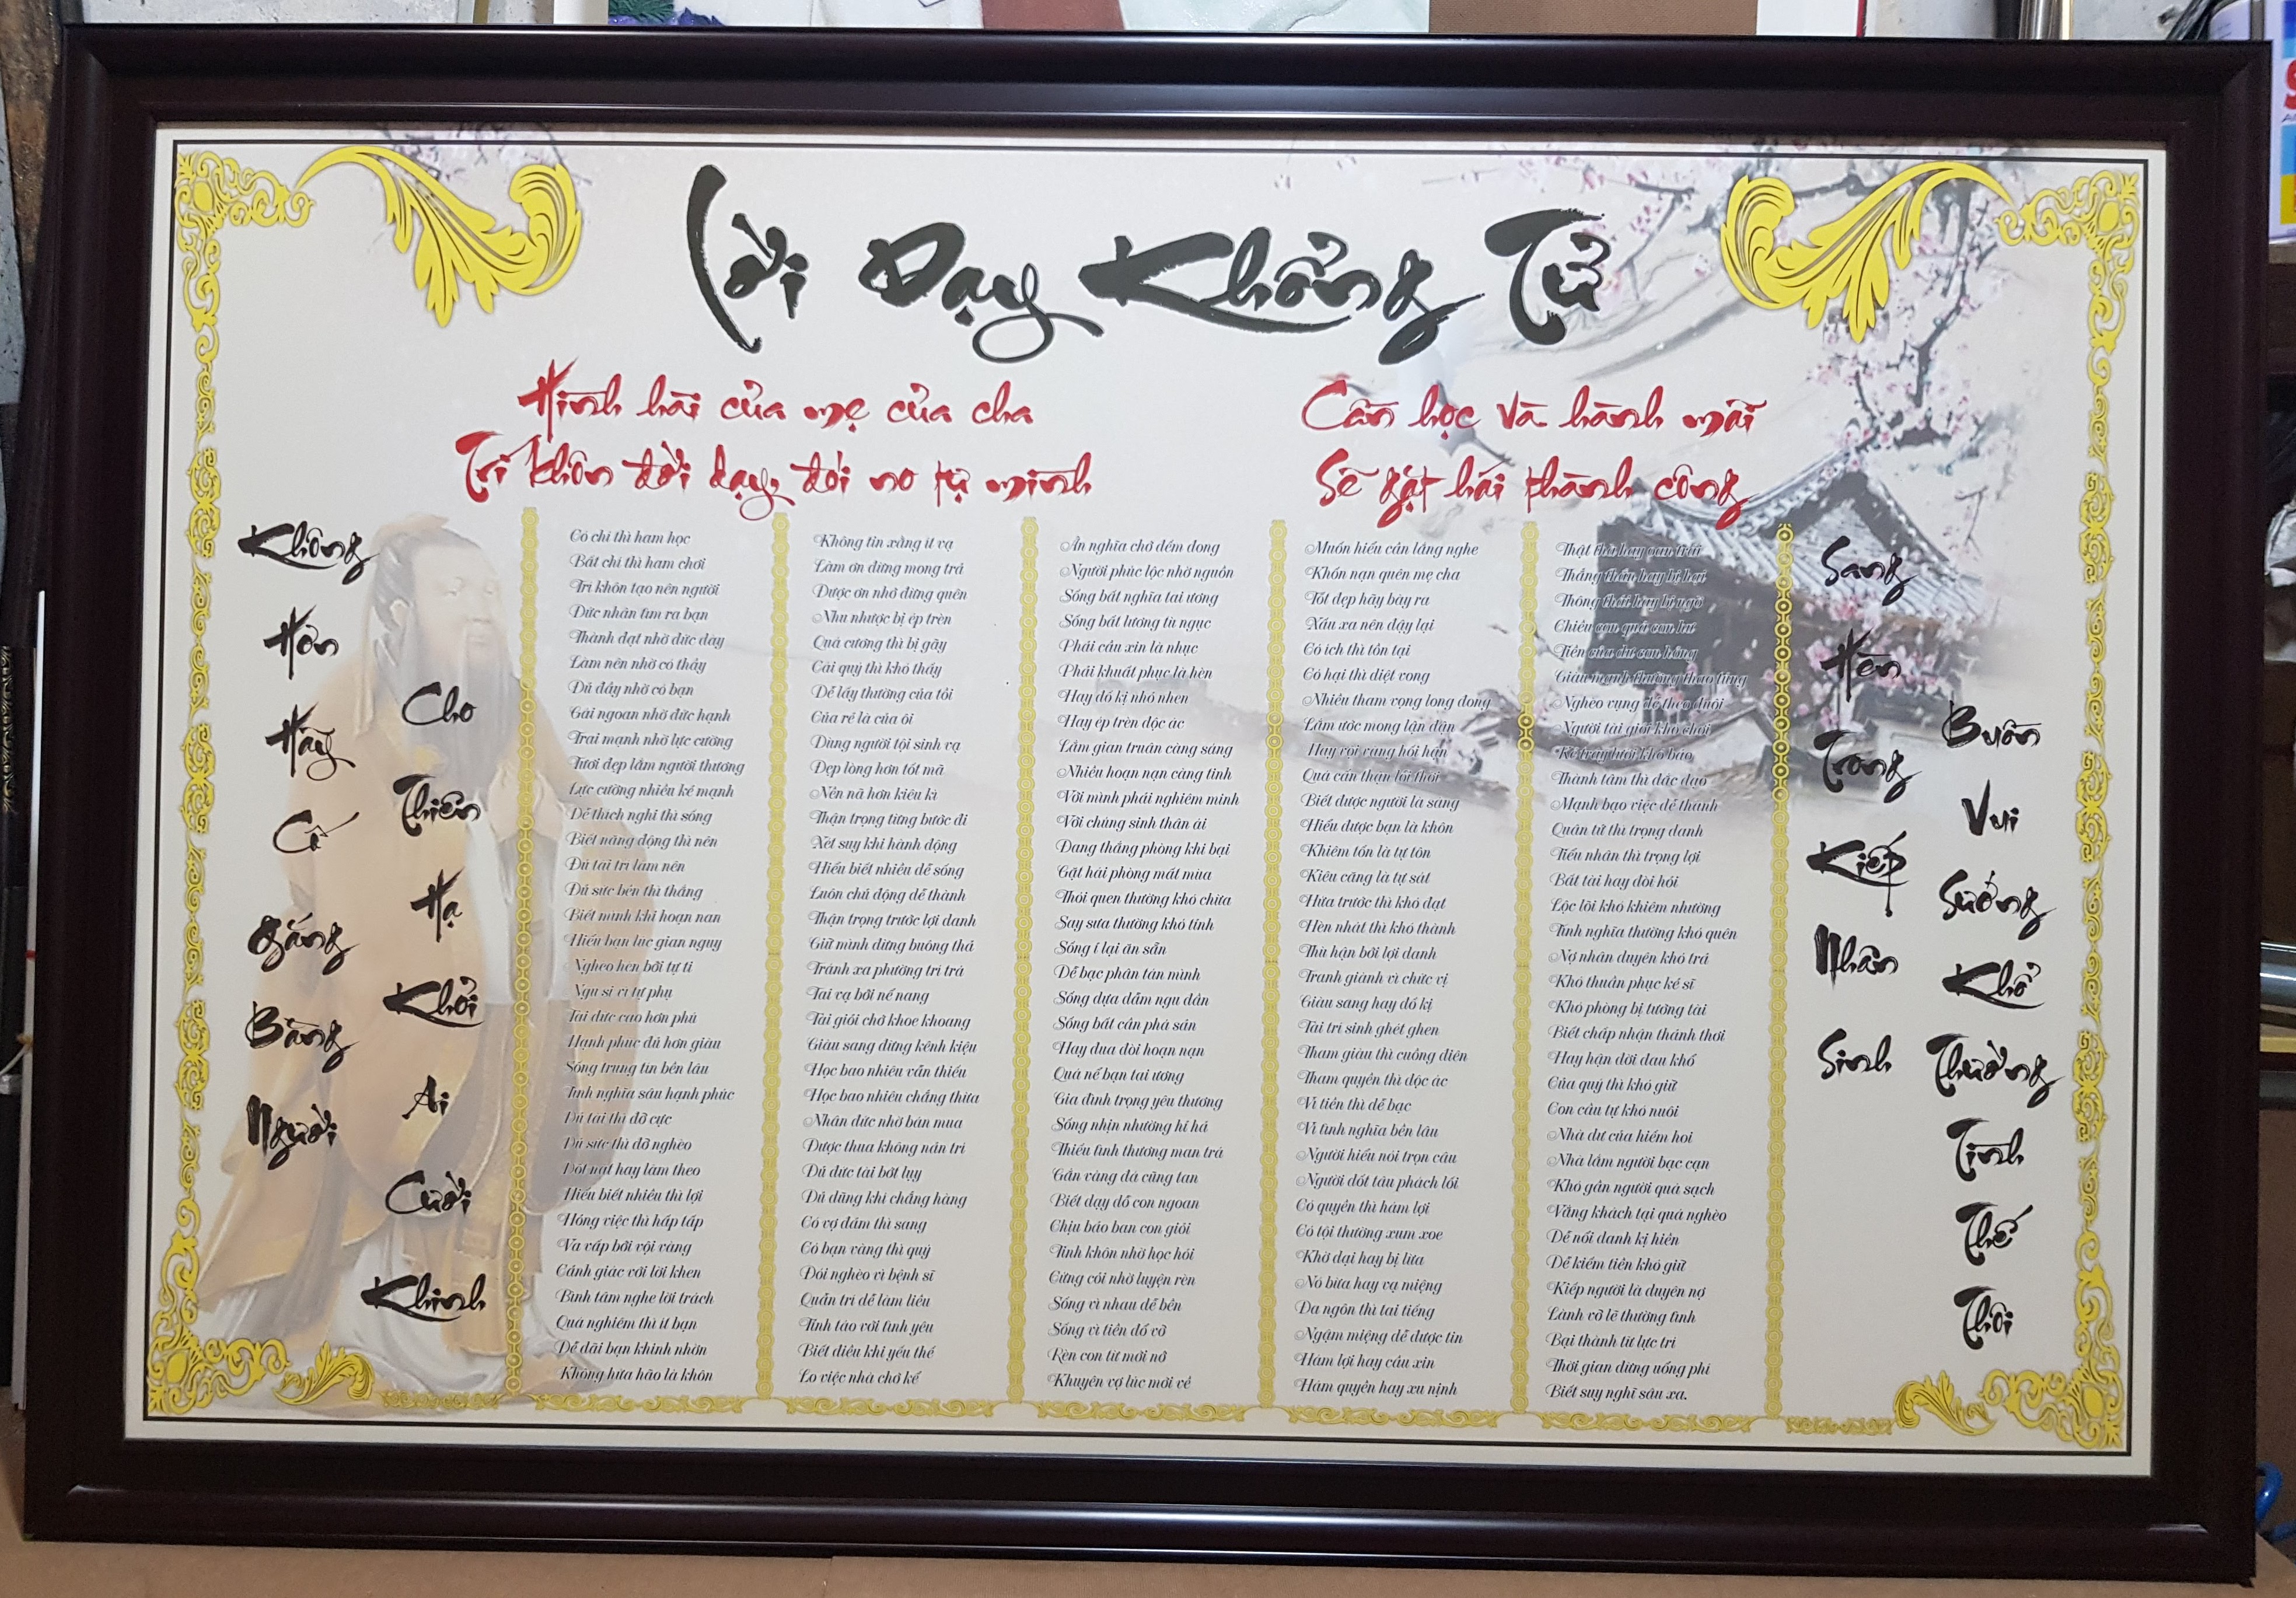 Lời Dạy Khổng Tử
Hình hài của mẹ của cha
Trí khôn đời dạy, đói no tự mình
Cần học và hành mãi
Sẽ gặt hái thành công
Không
Hơn
Hãy
Cố
gắng
Bằng
Người
Cho
Thiên
Hạ
Khỏi
Ai
Cười
Khinh
Có chí thì ham học
Bất chí thì ham chơi
Trí khôn tạo nên người
Đức nhân tìm ra bạn
Thành đạt nhờ đức dày
Làm nên nhờ có thầy
Đủ đầy nhờ có bạn
Gái ngoan nhờ đức hạnh
Trai mạnh nhờ lực cường
Tươi đẹp lắm người thương
Lực cường nhiều kẻ mạnh
Dễ thích nghi thì sống
Biết năng động thì nên
Đủ tài trí làm nên
Đủ sức bền thì thắng
Biết mình khi hoạn nạn
Hiểu bạn lúc gian nguy
Nghèo hèn bởi tự ti
Ngu si vì tự phụ
Tài đức cao hơn phú
Hạnh phúc đủ hơn giàu
Sống trung tín bền lâu
Tình nghĩa sâu hạnh phúc
Đủ tài thì đỡ cực
Đủ sức thì đỡ nghèo
Dốt nát hay làm theo
Hiểu biết nhiều thì lợi
Hỏng việc thì hấp tấp
Va vấp bởi vội vàng
Cảnh giác với lời khen
Bình tâm nghe lời trách
Quá nghiêm thì ít bạn
Dễ dãi bạn khinh nhờn
Không hứa hão là khôn
Không tin xằng ít vạ
Làm ơn đừng mong trả
Được ơn nhớ đừng quên
Nhu nhược bị ép trèn
Quá cường thì bị gãy
Cái quý thì khó thấy
Dễ lấy thường của tồi
Của rẻ là của ôi
Dùng người tồi sinh vạ
Đẹp lòng hơn tốt mã
Nền nã hơn kiêu kì
Thận trọng từng bước đi
Xét suy khi hành động
Hiểu biết nhiều dễ sống
Luôn chủ động dễ thành
Thận trọng trước lợi danh
Giữ mình đừng buông thả
Tránh xa phường trí trá
Tai vạ bởi nể nang
Tài giỏi chớ khoe khoang
Giàu sang đừng kênh kiệu
Học bao nhiêu vẫn thiếu
Học bao nhiêu chẳng thừa
Nhân đức nhờ bán mua
Được thua không nản trí
Đủ đức tài bớt lụy
Đủ dũng khí chẳng hàng
Có vợ đảm thì sang
Có bạn vàng thì quý
Đói nghèo vì bệnh sĩ
Quẫn trí dễ làm liều
Tỉnh táo với tình yêu
Biết điều khi yếu thế
Lo việc nhà chớ kể
Ân nghĩa chớ đếm đong
Người phúc lộc nhờ nguồn
Sống bất nghĩa tai ương
Sống bất lương tù ngục
Phải cầu xin là nhục
Phải khuất phục là hèn
Hay đố kị nhỏ nhen
Hay ép trèn độc ác
Lắm gian truân càng sáng
Nhiều hoạn nạn càng tinh
Với mình phải nghiêm minh
Với chúng sinh thân ái
Đang thắng phòng khi bại
Gặt hái phòng mất mùa
Thói quen thường khó chừa
Say sưa thường khó tính
Sống ỉ lại ăn sẵn
Dễ bạc phận tán mình
Sống dựa dẫm ngu đần
Sống bất cần phá sản
Hay đua đòi hoạn nạn
Quá nể bạn tai ương
Gia đình trọng yêu thương
Sống nhịn nhường hỉ hả
Thiếu tình thương man trá
Gần vàng đá cũng tan
Biết dạy dỗ con ngoan
Chịu bảo ban con giỏi
Tinh khôn nhờ học hỏi
Cứng cỏi nhờ luyện rèn
Sống vì nhau dễ bền
Sống vì tiền đổ vỡ
Rèn con từ mới nở
Khuyên vợ lúc mới về
Muốn hiểu cần lắng nghe
Khốn nạn quên mẹ cha
Tốt đẹp hãy bày ra
Xấu xa nên đậy lại
Có ích thì tồn tại
Có hại thì diệt vong
Nhiều tham vọng long đong
Lắm ước mong lận đận
Hay vội vàng hối hận
Quá cẩn thận lỗi thời
Biết được người là sáng
Hiểu được bạn là khôn
Khiêm tốn là tự tôn
Kiêu căng là tự sát
Hứa trước thì khó đạt
Hèn nhát thì khó thành
Thù hận bởi lợi danh
Tranh giành vì chức vị
Giàu sang hay đố kị
Tài trí sinh ghét ghen
Tham giàu thì cuồng điên
Tham quyền thì độc ác
Vì tiền thì dễ bạc
Vì tình nghĩa bền lâu
Người hiểu nói trọn câu
Người dốt tâu phách lối
Có quyền thì hám lợi
Có tội thường xum xoe
Khờ dại hay bị lừa
Nó bừa hay vạ miệng
Đa ngôn thì tai tiếng
Ngậm miệng dễ được tin
Hám lợi hay cầu xin
Hám quyền hay xu nịnh
Thật thà hay oan trái
Thẳng thắn hay bị hại
Thông thái hay bị ngờ
Chiều con quá con hư
Tiền của dư con hỏng
Giàu mạnh thường thao túng
Nghèo vụng dễ theo đuôi
Người tài giỏi khó chơi
Kẻ trây lười khó bảo
Thành tâm thì đắc đạo
Mạnh bạo việc dễ thành
Quân tử thì trọng danh
Tiểu nhân thì trọng lợi
Bất tài hay đòi hỏi
Lộc lõi khó khiêm nhường
Tình nghĩa thường khó quên
Nợ nhân duyên khó trả
Khó thuần phục kẻ sĩ
Khó phòng bị tướng tài
Biết chấp nhận thảnh thơi
Hay hận đời đau khổ
Của quý thì khó giữ
Con cầu tự khó nuôi
Nhà dư của hiếm hoi
Nhà lắm người bạc cạn
Khó gần người quá sạch
Vắng khách tại quá nghèo
Dễ nổi danh kị hiền
Dễ kiếm tiền khó giữ
Kiếp người là duyên nợ
Lành vỡ lẽ thường tình
Bại thành từ lực trí
Thời gian đừng uổng phí
Biết suy nghĩ sâu xa.
Sang
Hèn
Trong
Kiếp
Nhân
Sinh
Buồn
Vui
Sướng
Khổ
Thường
Tình
Thế
Thôi